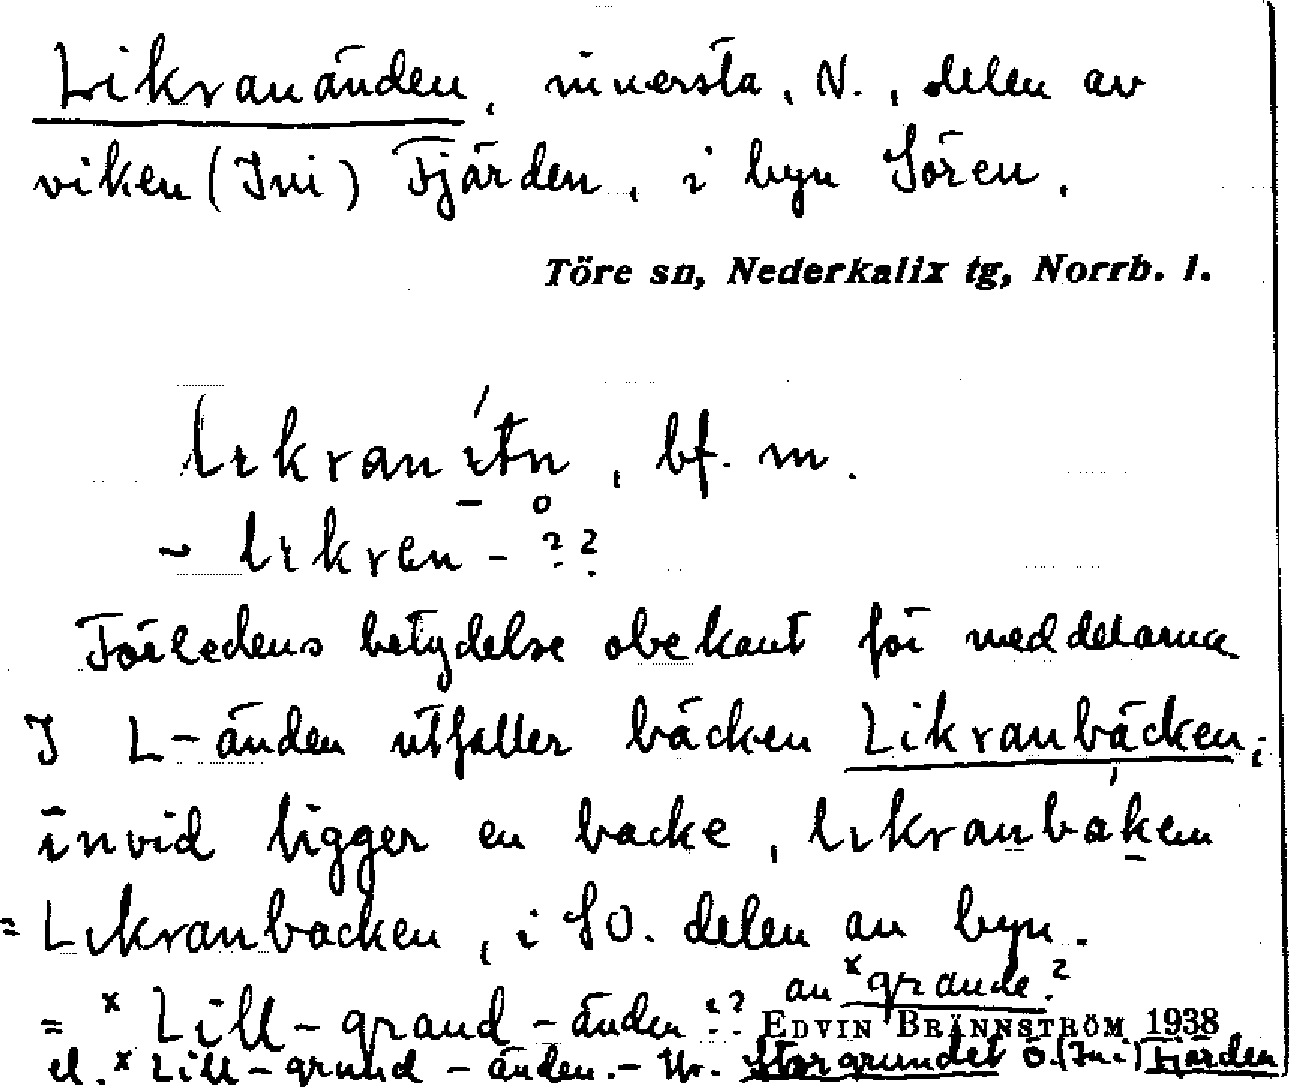 Likranänden, innersta, N., delen av
viken (Ini) Fjärden, i byn Sören.
Töre sn, Nederkalix tg, Norrb. l.
bf. m.
~ likren - ??
Förledens betydelse obekant för meddelarna
I L-änden utfaller bäcken Likranbäcken;
invid ligger en backe, likranbaken
= Likranbacken, i SO. delen av byn.
= x Lill-grand-änden ?? av x grande?
EDVIN BRÄNNSTRÖM 1938
el. x Lill-grund-änden. - Storgrundet Ö. (Ini) Fjärden